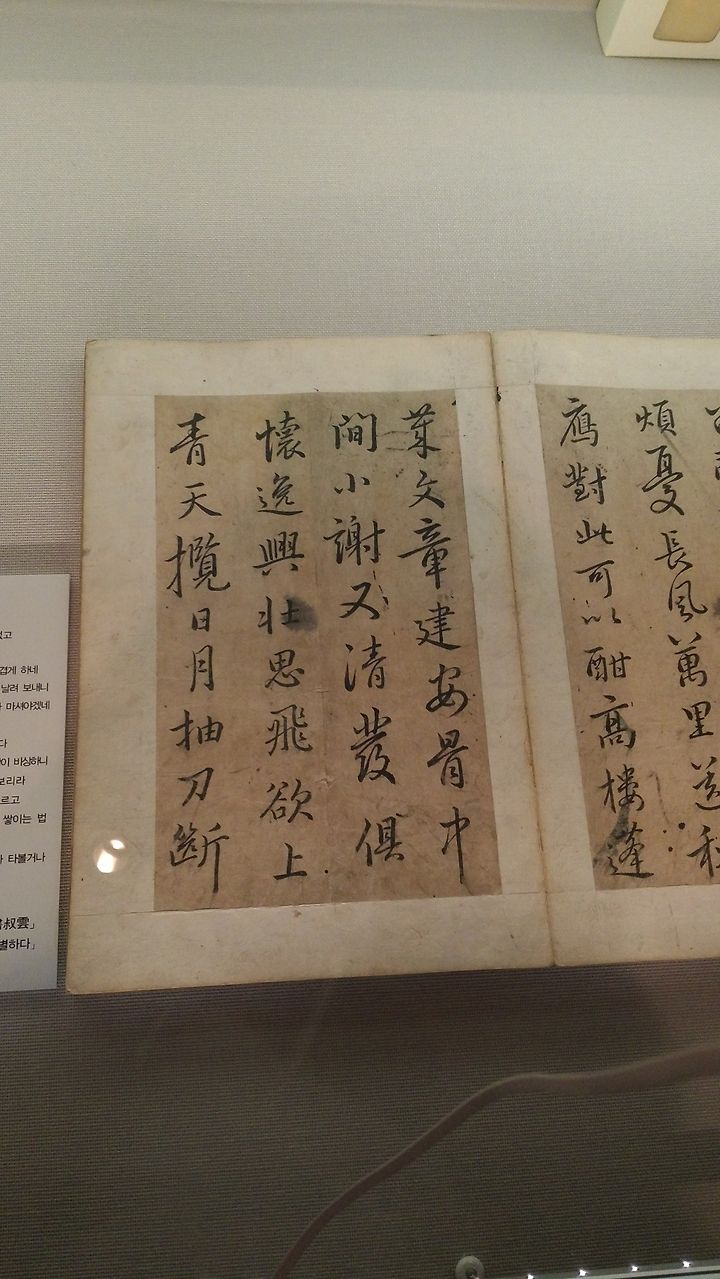 煩憂長風萬里送秋
鴈對此可以酣高樓蓬
萊文章建安骨中
間小謝又清發俱
懷逸興壯思飛欲上
青天攬日月抽刀斷
고
겹게 하네
날려 보내니
마셔야겠네
다
이 비상하니
보리라
르고
쌓이는 법
타볼거나
書叔雲」
別하다」